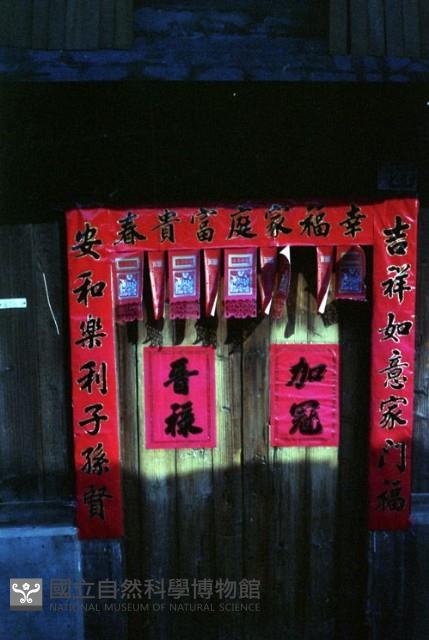 幸福家庭富貴春
吉祥如意家門福
安和樂利子孫賢
加冠
晉祿
國立自然科學博物館
NATIONAL MUSEUM OF NATURAL SCIENCE